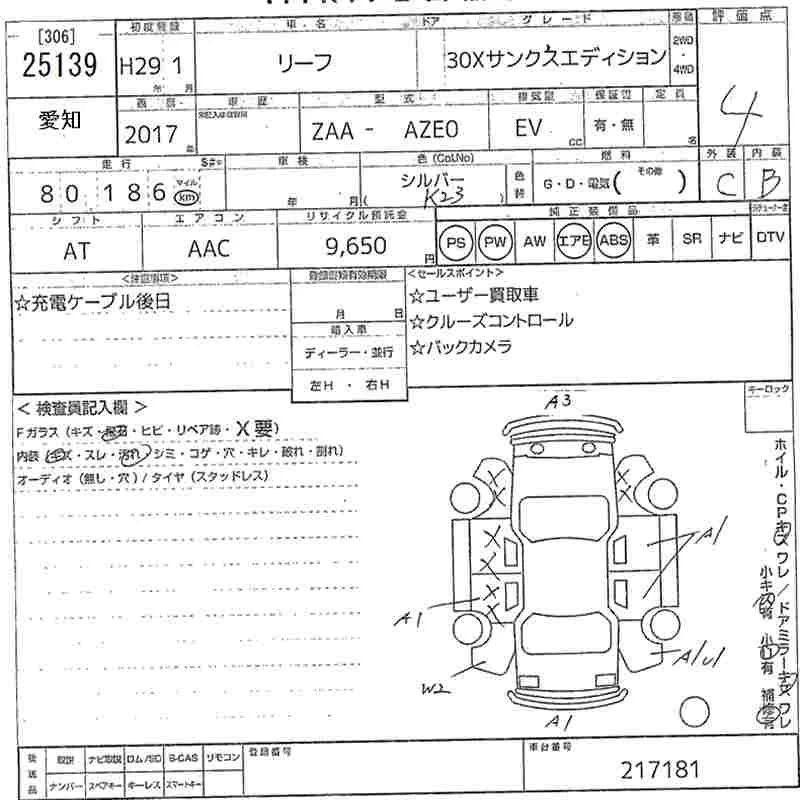 [306]
25139
愛知
初度登録
H29 1
年 月
車名
リーフ
ドア
グレード
30Xサンクスエディション
2WD
・
4WD
評価点
4
車歴
2017
年
型式
ZAA - AZE0
排気量
EV
cc
保証書
有・無
定員
名
走行
80,186
マイル
km
車検
年 月
色 (Col.No)
シルバー
K23
色替
燃料
G・D・電気( その他 )
外装
C
内装
B
シフト
AT
エアコン
AAC
リサイクル預託金
9,650
円
純正装備品
PS PW AW エアB ABS 革 SR ナビ DTV
<注意事項>
☆充電ケーブル後日
登録書類有効期限
月 日
輸入車
ディーラー・並行
左H ・ 右H
<セールスポイント>
☆ユーザー買取車
☆クルーズコントロール
☆バックカメラ
キーロック
<検査員記入欄>
Fガラス (キズ・飛石・ヒビ・リペア跡・X要)
内装 (キズ・スレ・汚れ・シミ・コゲ・穴・キレ・破れ・割れ)
オーディオ (無し・穴) / タイヤ (スタッドレス)
A3
A1
A1
W2
A1
ホイル・CPキズワレ/ドアミラーキズワレ
小キズ有 小凹有 補修有
後送品
取説 ナビ取説 ロム/SD B-CAS リモコン
ナンバー スペアキー キーレス スマートキー
登録番号
車台番号
217181